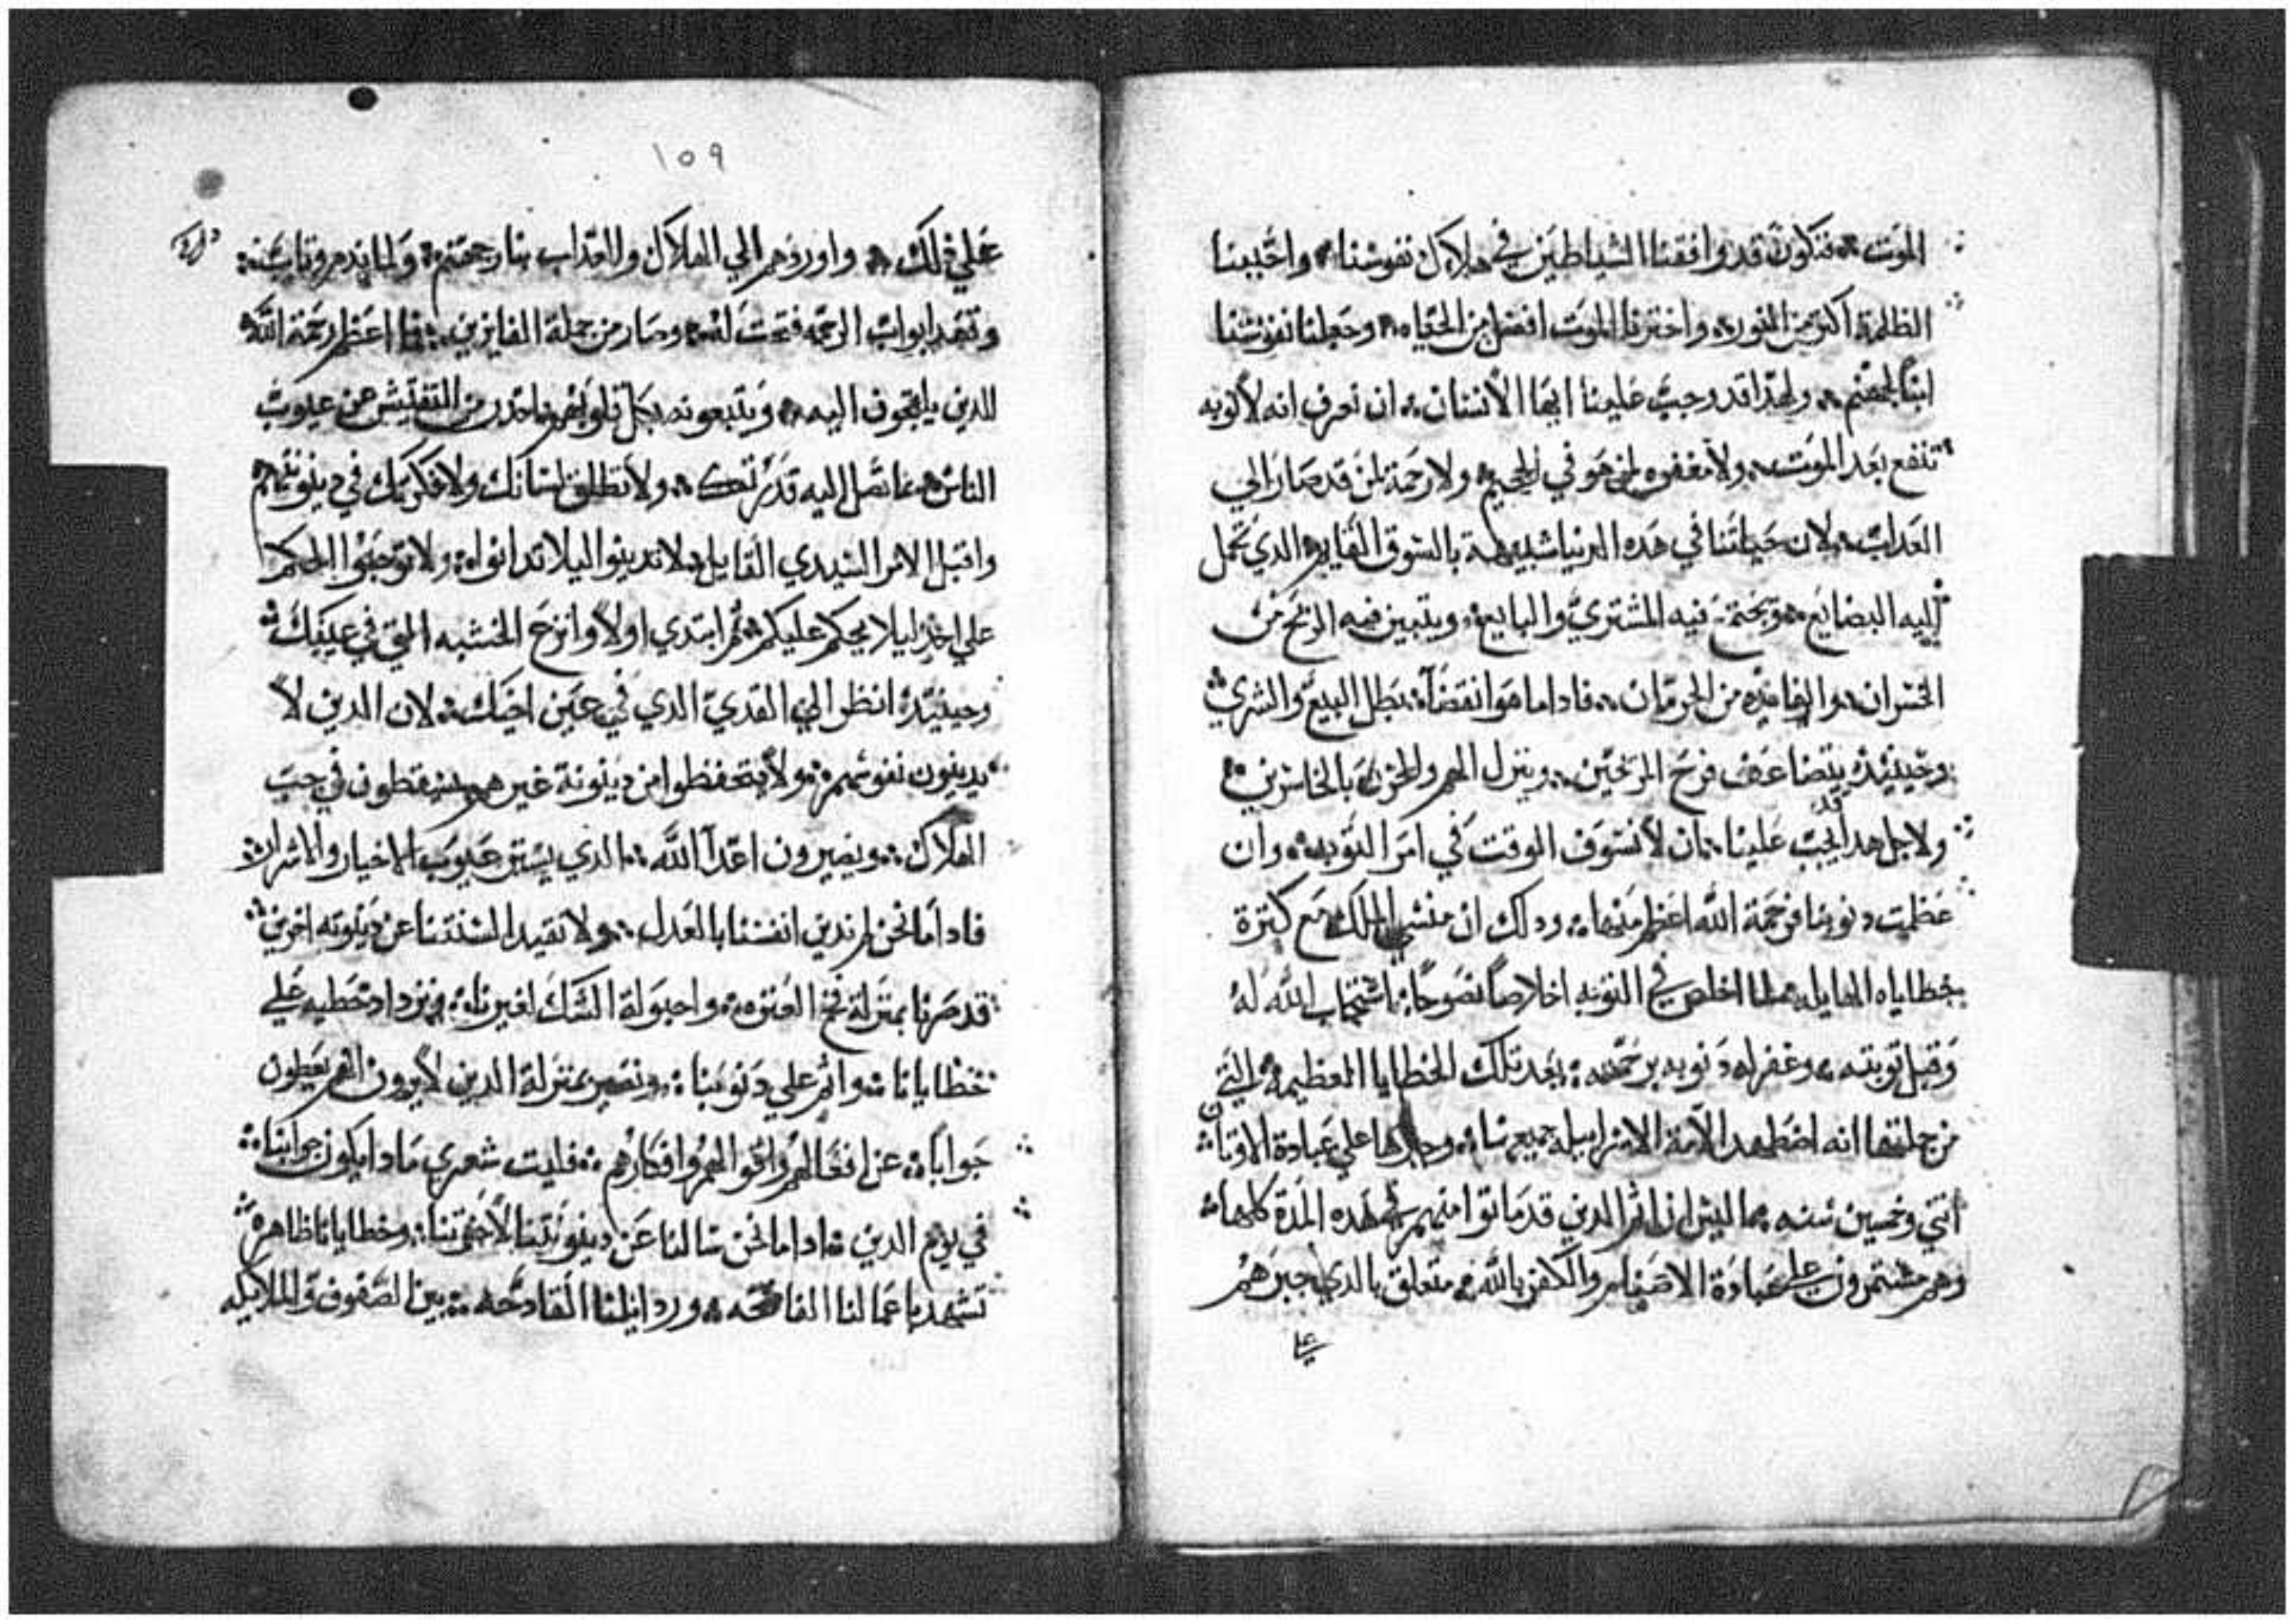 الموت فنكون قد وافقنا الشياطين في هلاك نفوسنا واحببنا
الظلمة اكتر من النور واخترنا الموت افضل من الحياه وجعلنا نفوسنا
ابنا لجهنم ولهدا قد وجب علينا ايها الانسان ان نعرف انه لا توبه
تنفع بعد الموت ولا مغفره لمن هو في الجحيم ولا رحمة لمن قد صار الي
العداب لان حياتنا في هده الدنيا شبيهة بالسوق القايم الدي تحمل
اليه البضايع ويجتمع فيه المشتري والبايع ويتبين فيه الربح من
الخسران والفايده من الحرمان فادا ما هو انقضا بطل البيع والشري
وحينيد يتضاعف فرح المربحين وينزل الهم والحزن بالخاسرين
ولاجل هدا قد يجب علينا ان لا نسوف الوقت في امر التوبه وان
عظمت دنوبنا فرحمة الله اعظم منها ودلك ان منشي الملك مع كترة
خطاياه الهايله لما اخلص في التوبه اخلاصا نصوحا استجاب الله له
وقبل توبته وغفر له دنوبه برحمته بعد تلك الخطايا العظيمه التي
من جملتها انه اضطهد الامة الاسراييليه جميعها وجبرها علي عبادة الاوتان
اتني وخمسين سنه ما ليس ان اتم الدين قد ماتوا منهم في هده المدة كلها
وهم مستمرون علي عبادة الاصنام والكفر بالله متعلق بالدي جبرهم
علي
١٥٩
علي دلك واوردهم الي الهلاك والعداب بنار جهنم ولما ندم وتاب
وتقدم ابواب الرحمه فتحت له وصار من جملة الفايزين فما اعظم رحمة الله
للدين يلتجون اليه ويتبعونه بكل قلوبهم فاحدر من التفتيش عن عيوب
الناس ما تصل اليه قدرتك ولا تطلق لسانك ولا فكرك في دينونتهم
واقبل الامر السيدي القايل لا تدينوا ليلا تدانوا ولا توجبوا الحكم
علي احد ليلا يحكم عليكم تم ابتدي اولا وانزع الخشبه التي في عينك
وحينيد انظر الي القدي الدي في عين اخيك لان الدين لا
يدينون نفوسهم ولا يتحفظوا من دينونة غيرهم يسقطون في جب
الهلاك ويصيرون اعدآ الله الدي يستر عيوب الاخيار والاشرار
فادا ما نحن لم ندين انفسنا بالعدل ولا نقيد السنتنا عن دينونه اخرين
قد صرنا بمنزلة فخ العتره واحبولة الشك لغيرنا ونزداد خطيه علي
خطايانا واتم علي دنوبنا ونصير بمنزلة الدين لا يرون انهم يعطون
جوابا عن افعالهم واقوالهم وافكارهم فليت شعري مادا يكون جوابنا
في يوم الدين ادا ما نحن سالنا عن دينونتنا لاخوتنا وخطايانا ظاهره
تشهد باعمالنا الفاضحه وردايلنا القادحه بين الصفوف والملايكه